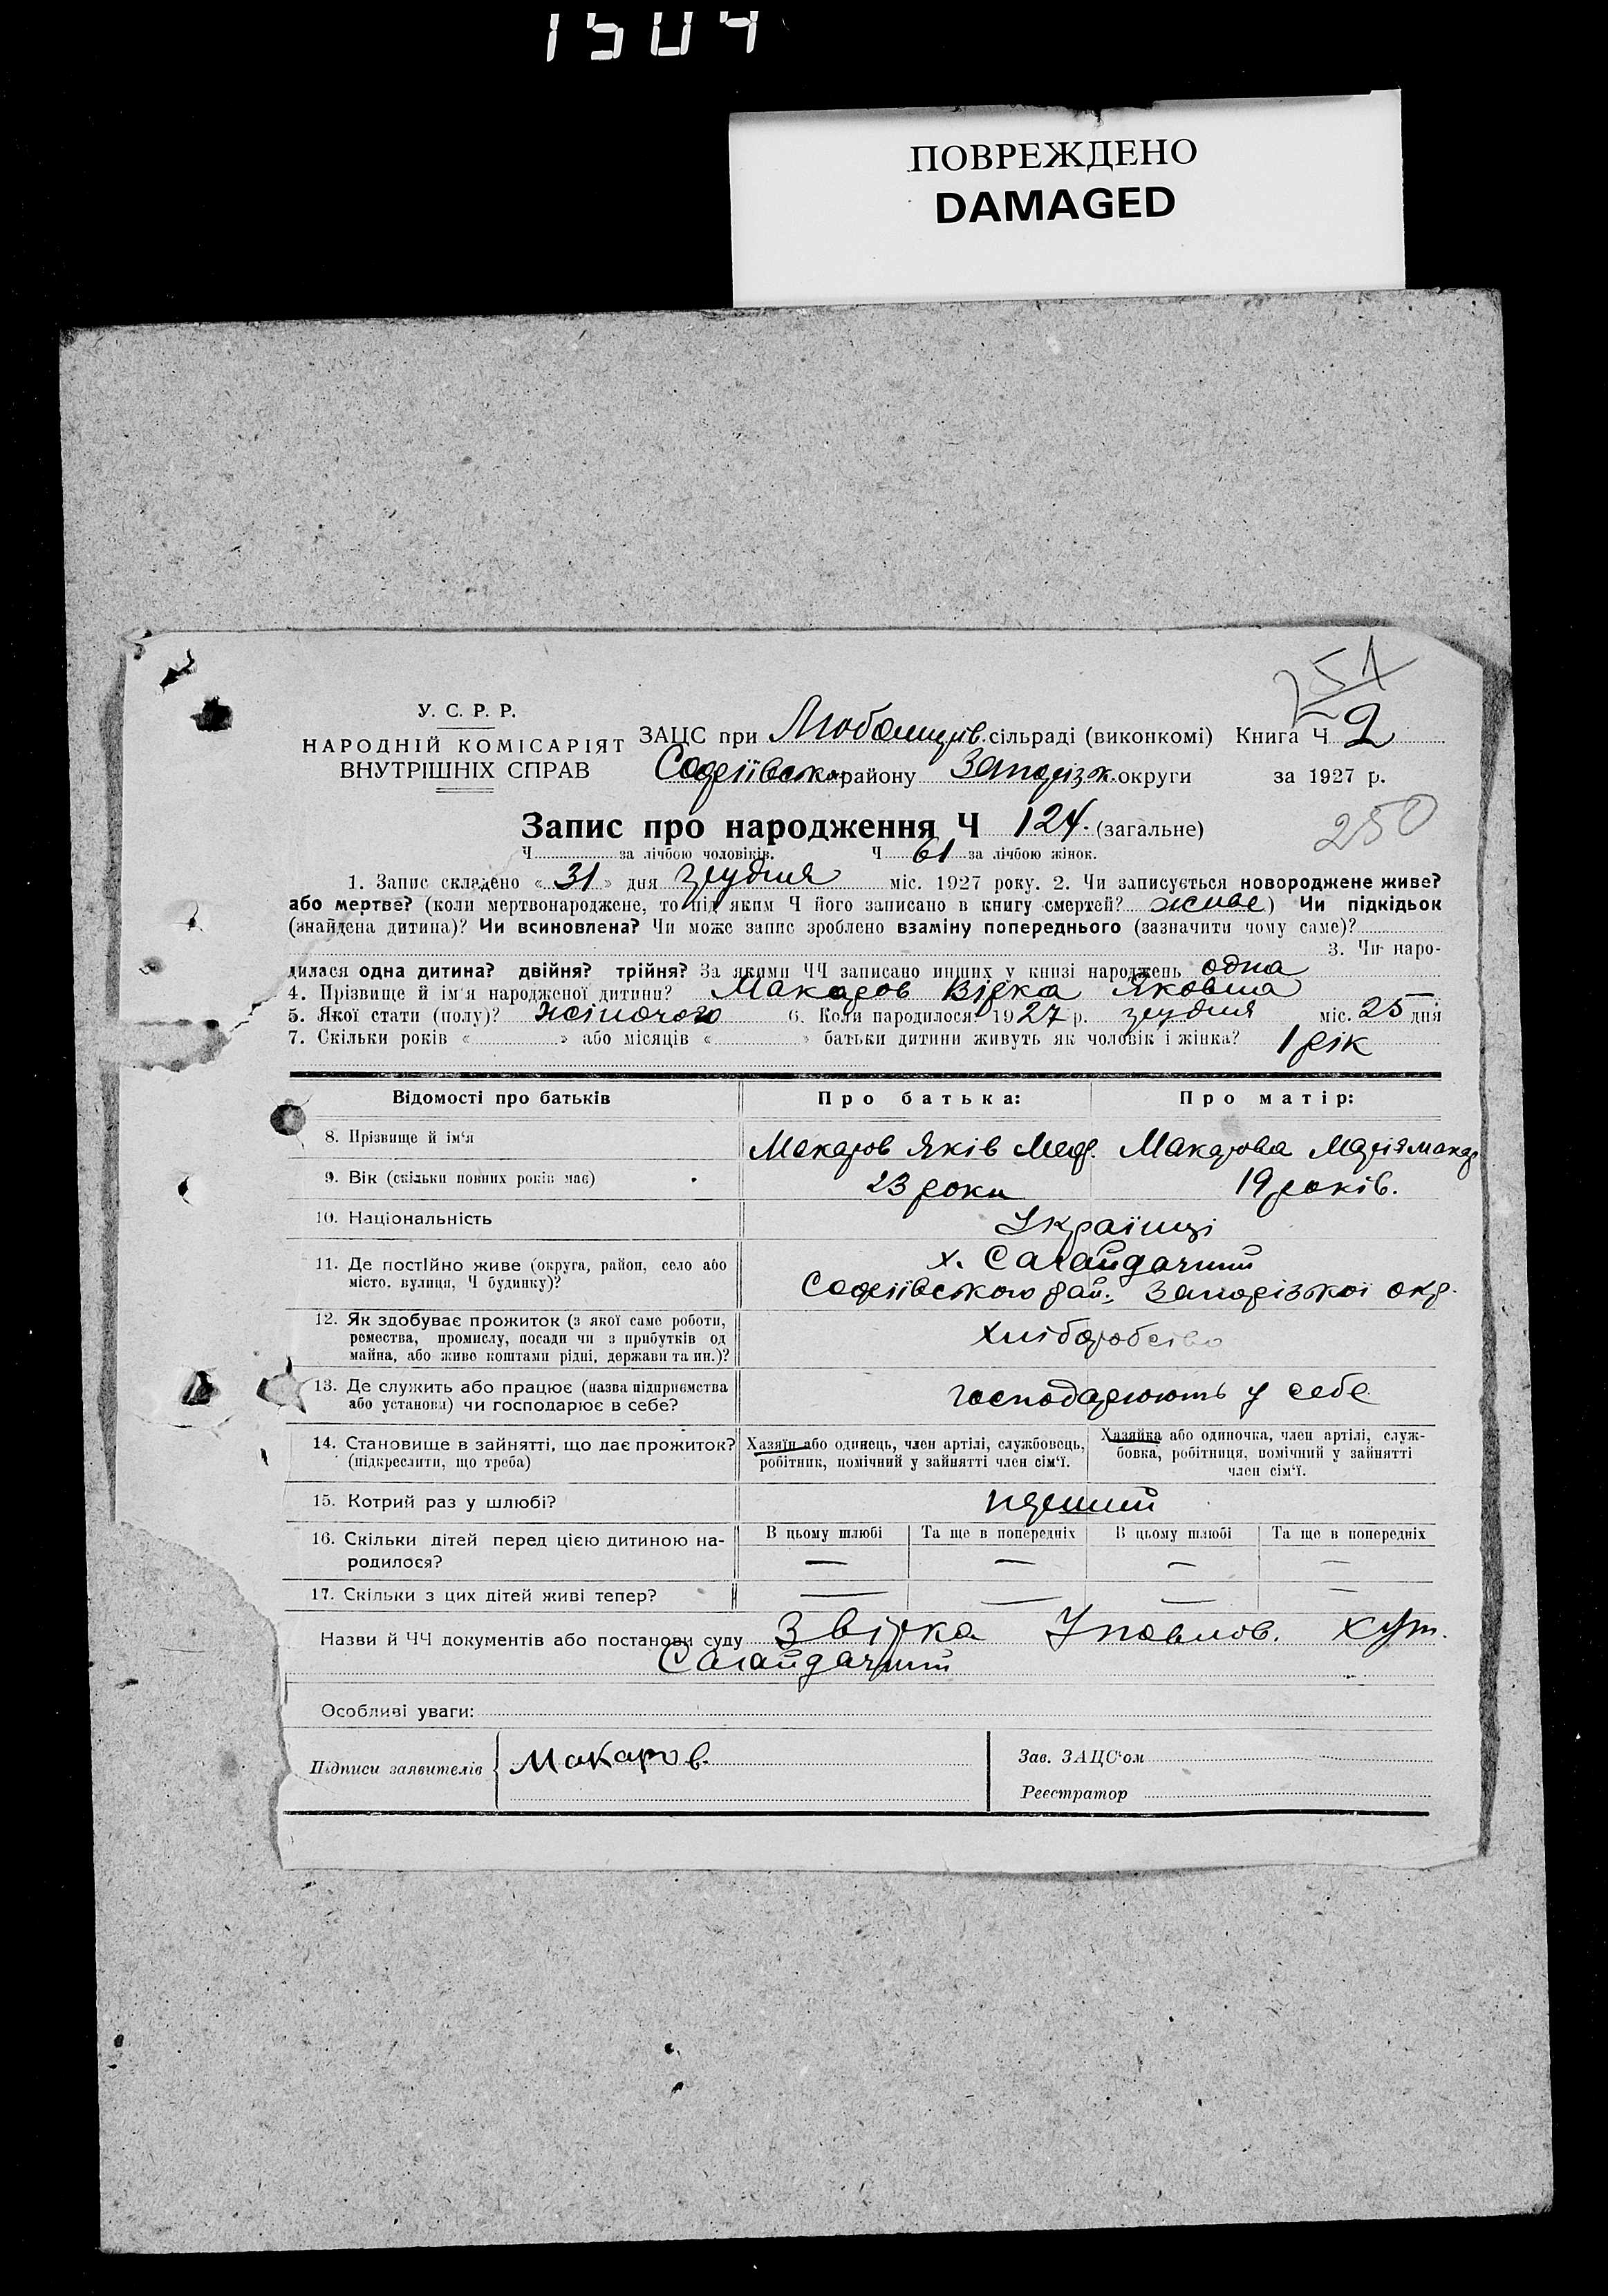 1504
ПОВРЕЖДЕНО
DAMAGED
251
У. С. Р. Р.
НАРОДНІЙ КОМІСАРІЯТ
ВНУТРІШНІХ СПРАВ
ЗАЦС при Любомирів. сільраді (виконкомі) Книга Ч 2
Софіївськ. району Запорізьк. округи за 1927 р.
Запис про народження Ч 124. (загальне)
250
Ч за лічбою чоловіків. Ч 61 за лічбою жінок.
1. Запис складено « 31 » дня грудня міс. 1927 року. 2. Чи записується новороджене живе?
або мертве? (коли мертвонароджене, то під яким Ч його записано в книгу смертей? живе) Чи підкідьок
(знайдена дитина)? Чи всиновлена? Чи може запис зроблено взаміну попереднього (зазначити чому саме)?
3. Чи наро-
дилася одна дитина? двійня? трійня? За якими ЧЧ записано инших у книзі народжень одна
4. Прізвище й ім'я народженої дитини? Макаров Вірка Яковна
5. Якої стати (полу)? жіночого 6. Коли народилося? 1927 р. грудня міс. 25 дня
7. Скільки років « » або місяців « » батьки дитини живуть як чоловік і жінка? 1 рік
Відомості про батьків Про батька: Про матір:
8. Прізвище й ім'я Макаров Яків Меф. Макарова Марія Макар
9. Вік (скільки повних років має) 23 роки 19 років.
10. Національність Українці
11. Де постійно живе (округа, район, село або х. Сагайдачний
місто, вулиця, Ч будинку)? Софіївського рай., Запорізької окр.
12. Як здобуває прожиток (з якої саме роботи,
ремества, промислу, посади чи з прибутків од
майна, або живе коштами рідні, держави та ин.)? Хліборобство
13. Де служить або працює (назва підприємства
або установи) чи господарює в себе? господарюють у себе
14. Становище в зайнятті, що дає прожиток?
(підкреслити, що треба)
Хазяїн або одинець, член артілі, службовець,
робітник, помічний у зайнятті член сім'ї.
Хазяйка або одиночка, член артілі, служ-
бовка, робітниця, помічний у зайнятті
член сім'ї.
15. Котрий раз у шлюбі? перший
16. Скільки дітей перед цією дитиною на-
родилося?
В цьому шлюбі Та ще в попередніх В цьому шлюбі Та ще в попередніх
— — — —
17. Скільки з цих дітей живі тепер? — — — —
Назви й ЧЧ документів або постанови суду Звірка Уповнов. хут.
Сагайдачний
Особливі уваги:
Підписи заявителів Макаров.
Зав. ЗАЦС'ом
Реєстратор